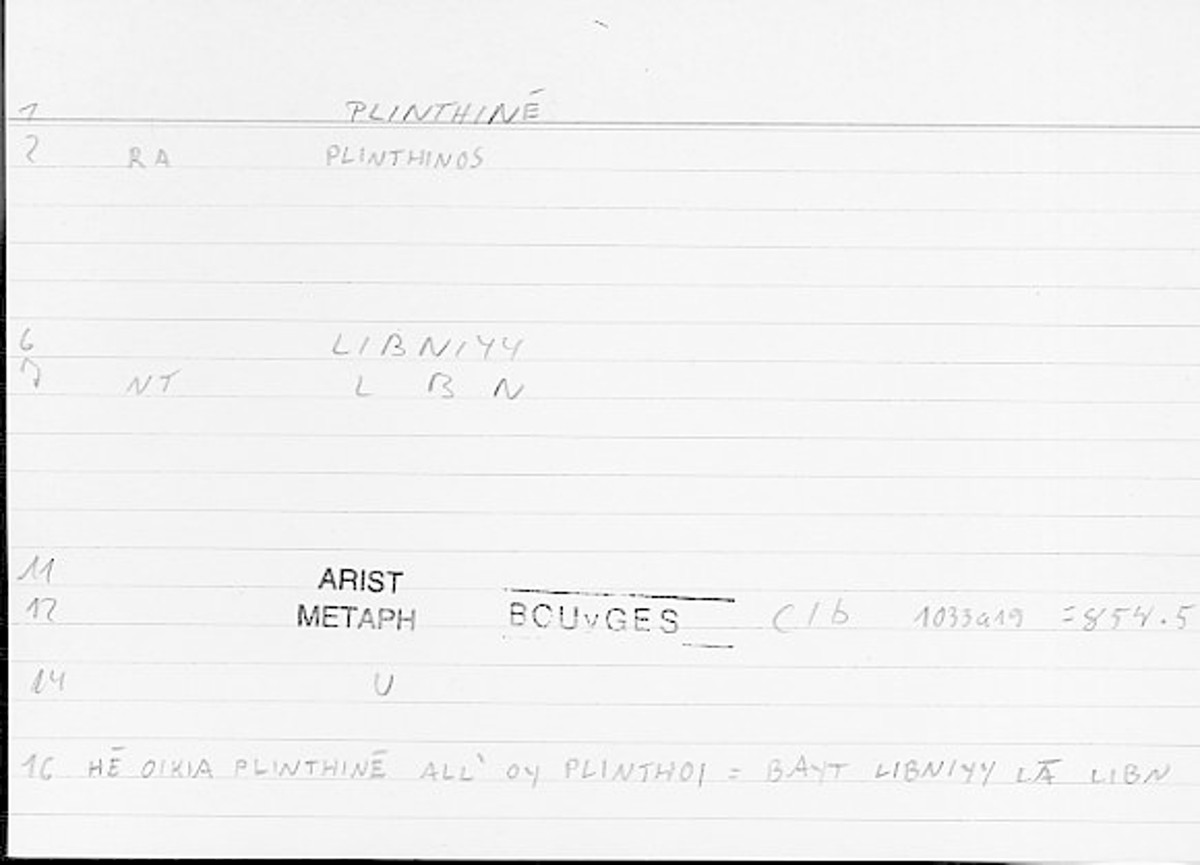 1 PLINTHINĒ
2 RA PLINTHINOS
6 LIBNIYY
7 NT L B N
11 ARIST
12 METAPH BOUvGES C/b 1033a19 =854.5
14 U
16 HĒ OIKIA PLINTHINĒ ALL' OY PLINTHOI = BAYT LIBNIYY LĀ LIBN